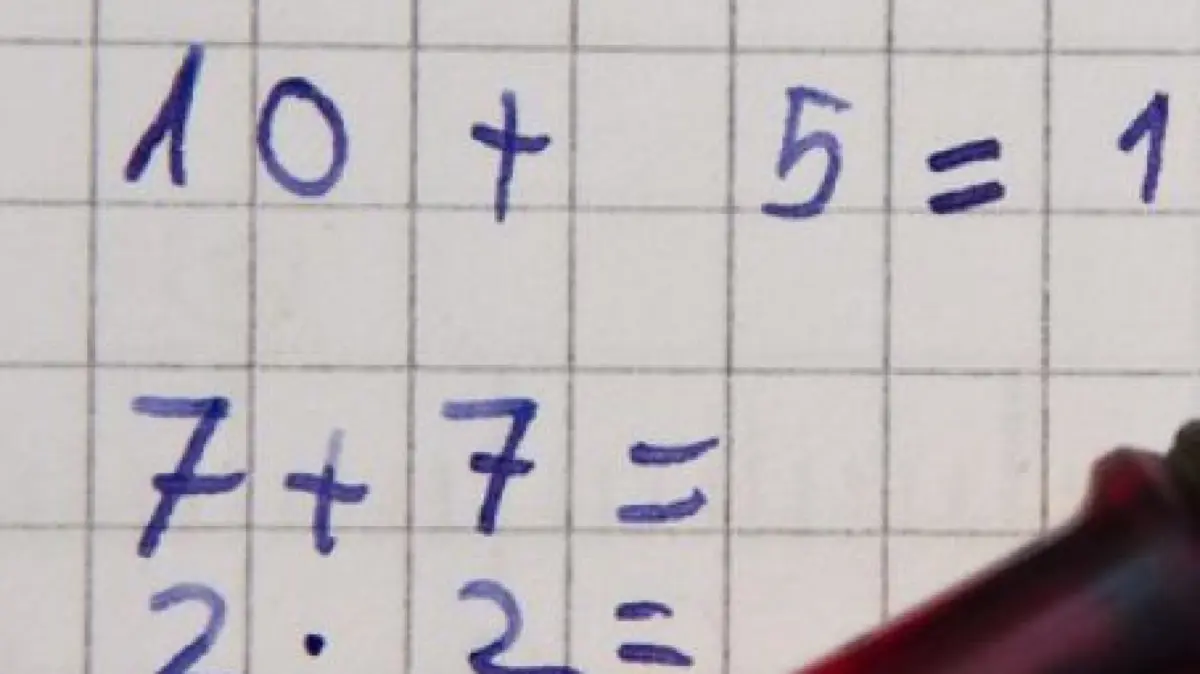 10 + 5 = 1
7 + 7 =
2 · 2 =